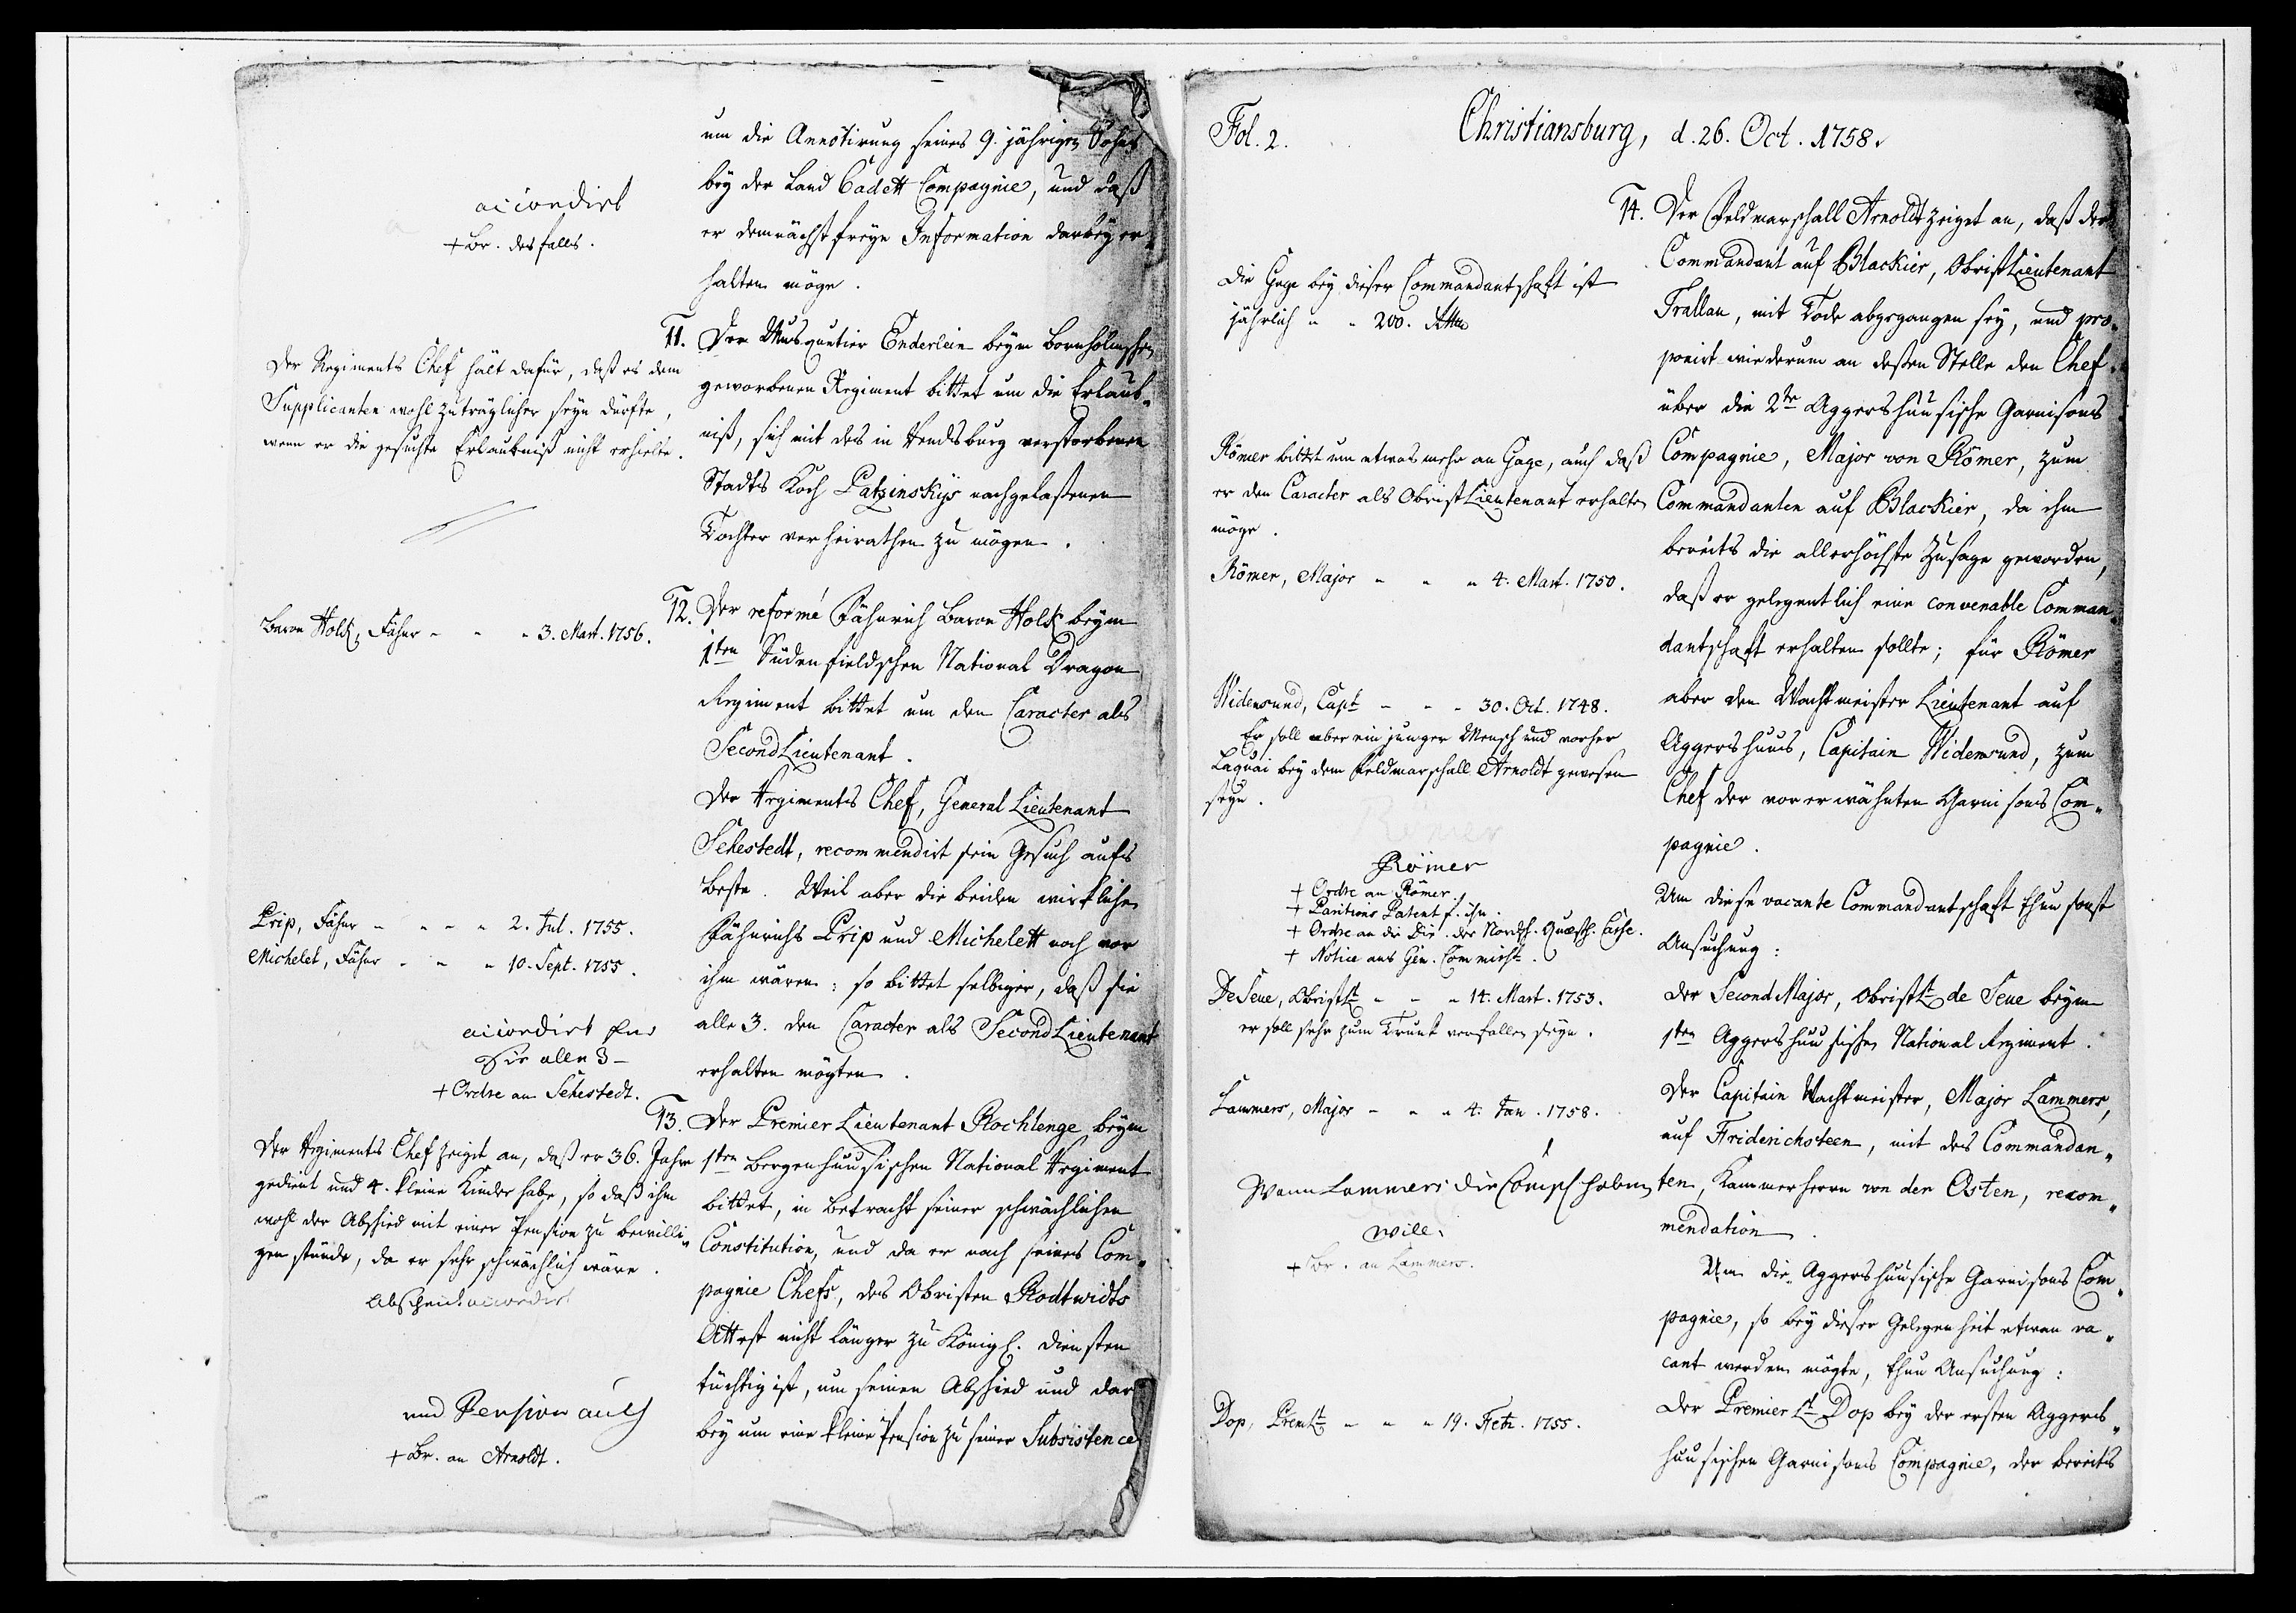 um die Annotirung seines 9. jährigen Sohns
bey der Land Cadett Compagnie, und daß
er demnächst freye Information darbey er-
halten möge.
accordirt
+ Br. desfalls.
11. Der Musquetier Enderlein beym Bornholmschen
geworbenen Regiment bittet um die Erlaub-
niß, sich mit des in Rendsburg verstorbenen
Stadts Koch Patzinskys nachgelaßenen
Tochter verheirathen zu mögen.
Der Regiments Chef hält dafür, daß es dem
Supplicanten wohl zuträglicher seyn dürfte,
wenn er die gesuchte Erlaubniß nicht erhielte.
12. Der reformé Fähnrich Baron Holk beym
1ten Südenfieldschen National Dragon
Regiment bittet um den Caracter als
Second Lieutenant.
Baron Holk, Fähnr - - - 3. Mart. 1756.
Der Regiments Chef, General Lieutenant
Sehestedt, recommendirt sein Gesuch aufs
beste. Weil aber die beiden wirklichen
Fähnrichs Prip und Michelett noch vor
ihm wären: so bittet selbiger, daß sie
alle 3. den Caracter als Second Lieutenant
erhalten mögten.
Prip, Fähnr - - - - 2. Jul. 1755.
Michelet, Fähnr - - - 10. Sept. 1755.
accordirt
für alle 3 -
+ Ordre an Sehestedt.
13. Der Premier Lieutenant Rochlenge beym
1sten Bergenhuusischen National Regiment
bittet, in Betracht seiner schwächlichen
Constitution, und da er nach seines Com-
pagnie Chefs, des Obristen Rodtwidts
Attest nicht länger zu Königl. Diensten
tüchtig ist, um seinen Abschied und dar
bey um eine kleine Pension zu seiner Subsistence
Der Regiments Chef zeiget an, daß er 36. Jahr
gedient und 4. kleine Kinder habe, so daß ihm
wohl der Abschied mit einer Pension zu bewilli-
gen stünde, da er sehr schwächlich wäre.
Abscheid accordirt
und Pension auch
+ Br. an Arnoldt.
Fol. 2.
Christiansburg, d. 26. Oct. 1758.
14. Der Feldmarschall Arnoldt zeiget an, daß der
Commandant auf Blackier, Obrist Lieutenant
Frallan, mit Tode abgegangen sey, und pro-
poniret wiederum an deßen Stelle den Chef
über die 2te Aggershuusische Garnisons
Compagnie, Major von Römer, zum
Commandanten auf Blackier, da ihm
bereits die allerhöchste Zusage geworden,
daß er gelegentlich eine convenable Comman-
dantschaft erhalten sollte; für Römer
aber den Wachtmeister Lieutenant auf
Aggershuus, Capitain Widensund, zum
Chef der vorerwähnten Garnisons Com-
pagnie.
Die Gage bey dieser Commandantschaft ist
jährlich - - 200. Rthlr
Römer bittet um etwas mehr an Gage, auch daß
er den Caracter als Obrist Lieutenant erhalten
möge.
Römer, Major - - - 4. Mart. 1750.
Widensund, Capt - - - 30. Oct. 1748.
Er soll aber ein junger Mensch und vorher
Laquai bey dem Feldmarschall Arnoldt gewesen
seyn.
Römer
+ Ordre an Römer.
+ Paritions Patent f. ihn.
+ Ordre an die Dir. der Nordsch. Quæsth. Casse.
+ Notice ans Gen. Commisst.
Um diese vacante Commandantschaft thun sonst
Ansuchung:
Der Second Major, Obristlt de Seue beym
1sten Aggershuusischen National Regiment.
De Seue, Obristlt - - - 14. Mart. 1753.
er soll sehr zum Trunk verfallen seyn.
Der Capitain Wachtmeister, Major Lammers,
auf Friderichsteen, mit des Commandan-
ten, Kammerherrn von der Osten, recom-
mendation.
Lammers, Major - - - 4. Jan. 1758.
Wann Lammers die Comp haben
will.
+ Br. an Lammers.
Um die Aggershuusische Garnisons Com-
pagnie, so bey dieser Gelegenheit etwan va-
cant werden mögte, thun Ansuchung:
Der Premier Lt Dop bey der ersten Aggers-
huusischen Garnisons Compagnie, der bereits
Dop, Premlt - - - 19. Febr. 1755.